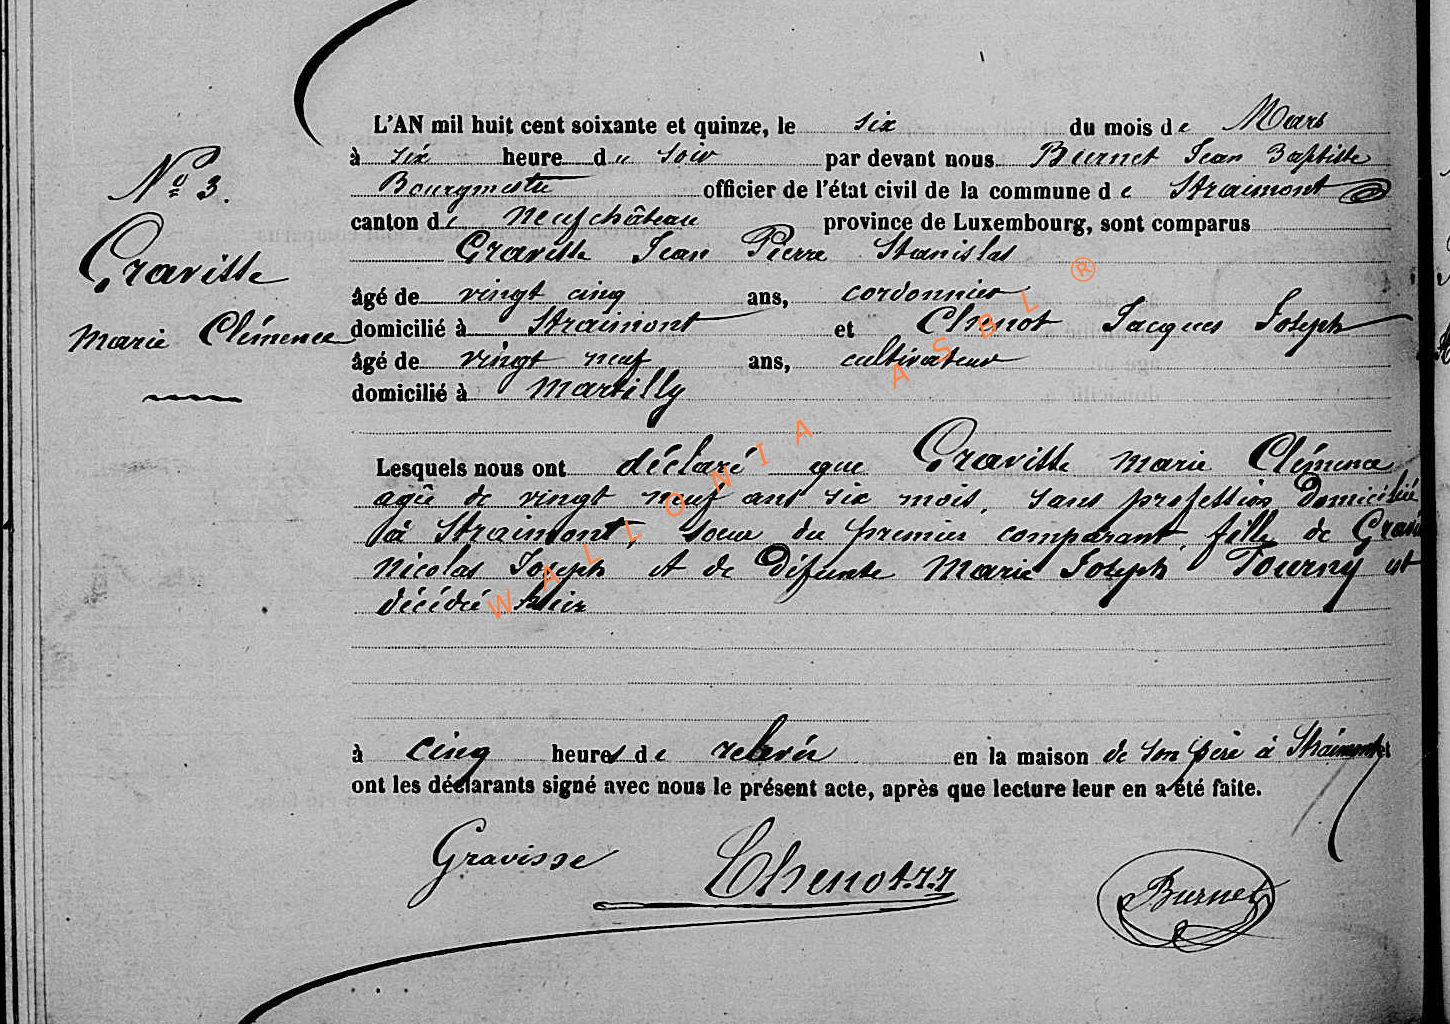 L'AN mil huit cent soixante et quinze, le six du mois de Mars
à six heure du soir par devant nous Burnet Jean Baptiste
Bourgmestre officier de l'état civil de la commune de Straimont
canton de Neufchâteau province de Luxembourg, sont comparus
Gravisse Jean Pierre Stanislas
âgé de vingt cinq ans, cordonnier
domicilié à Straimont et Chenot Jacques Joseph
âgé de vingt neuf ans, cultivateur
domicilié à Martilly
N° 3.
Gravisse
Marie Clémence
Lesquels nous ont déclaré que Gravisse Marie Clémence
agée de vingt neuf ans six mois, sans profession domiciliée
à Straimont, soeur du premier comparant, fille de
Nicolas Joseph et de défunte Marie Joseph Tourny est
décédée hier
à cinq heures de relevée en la maison de son père à Straimont et
ont les déclarants signé avec nous le présent acte, après que lecture leur en a été faite.
Gravisse Chenot J.J Burnet
WALLONIA ASBL ®